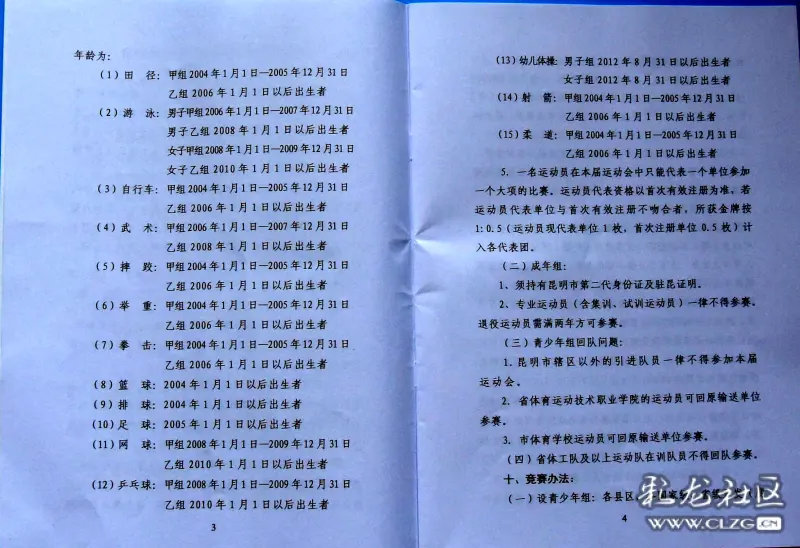 年龄为：
（1）田　径：甲组2004年1月1日—2005年12月31日
乙组2006年1月1日以后出生者
（2）游　泳：男子甲组2006年1月1日—2007年12月31日
男子乙组2008年1月1日以后出生者
女子甲组2008年1月1日—2009年12月31日
女子乙组2010年1月1日以后出生者
（3）自行车：甲组2004年1月1日—2005年12月31日
乙组2006年1月1日以后出生者
（4）武　术：甲组2006年1月1日—2007年12月31日
乙组2008年1月1日以后出生者
（5）摔　跤：甲组2004年1月1日—2005年12月31日
乙组2006年1月1日以后出生者
（6）举　重：甲组2004年1月1日—2005年12月31日
乙组2006年1月1日以后出生者
（7）拳　击：甲组2004年1月1日—2005年12月31日
乙组2006年1月1日以后出生者
（8）篮　球：2004年1月1日以后出生者
（9）排　球：2004年1月1日以后出生者
（10）足　球：2005年1月1日以后出生者
（11）网　球：甲组2008年1月1日—2009年12月31日
乙组2010年1月1日以后出生者
（12）乒乓球：甲组2008年1月1日—2009年12月31日
乙组2010年1月1日以后出生者
3
（13）幼儿体操：男子组2012年8月31日以后出生者
女子组2012年8月31日以后出生者
（14）射　箭：甲组2004年1月1日—2005年12月31日
乙组2006年1月1日以后出生者
（15）柔　道：甲组2004年1月1日—2005年12月31日
乙组2006年1月1日以后出生者
5．一名运动员在本届运动会中只能代表一个单位参加
一个大项的比赛。运动员代表资格以首次有效注册为准，若
运动员代表单位与首次有效注册不吻合者，所获金牌按
1:0.5（运动员现代表单位1枚，首次注册单位0.5枚）计
入各代表团。
（二）成年组：
1．须持有昆明市第二代身份证及驻昆证明。
2．专业运动员（含集训、试训运动员）一律不得参赛。
退役运动员需满两年方可参赛。
（三）青少年组回队问题：
1．昆明市辖区以外的引进队员一律不得参加本届
运动会。
2．省体育运动技术职业学院的运动员可回原输送单位
参赛。
3．市体育学校运动员可回原输送单位参赛。
（四）省体工队及以上运动队在训队员不得回队参赛。
十、竞赛办法：
（一）设青少年组：各县区、
4
彩龙社区
WWW.CLZG.CN